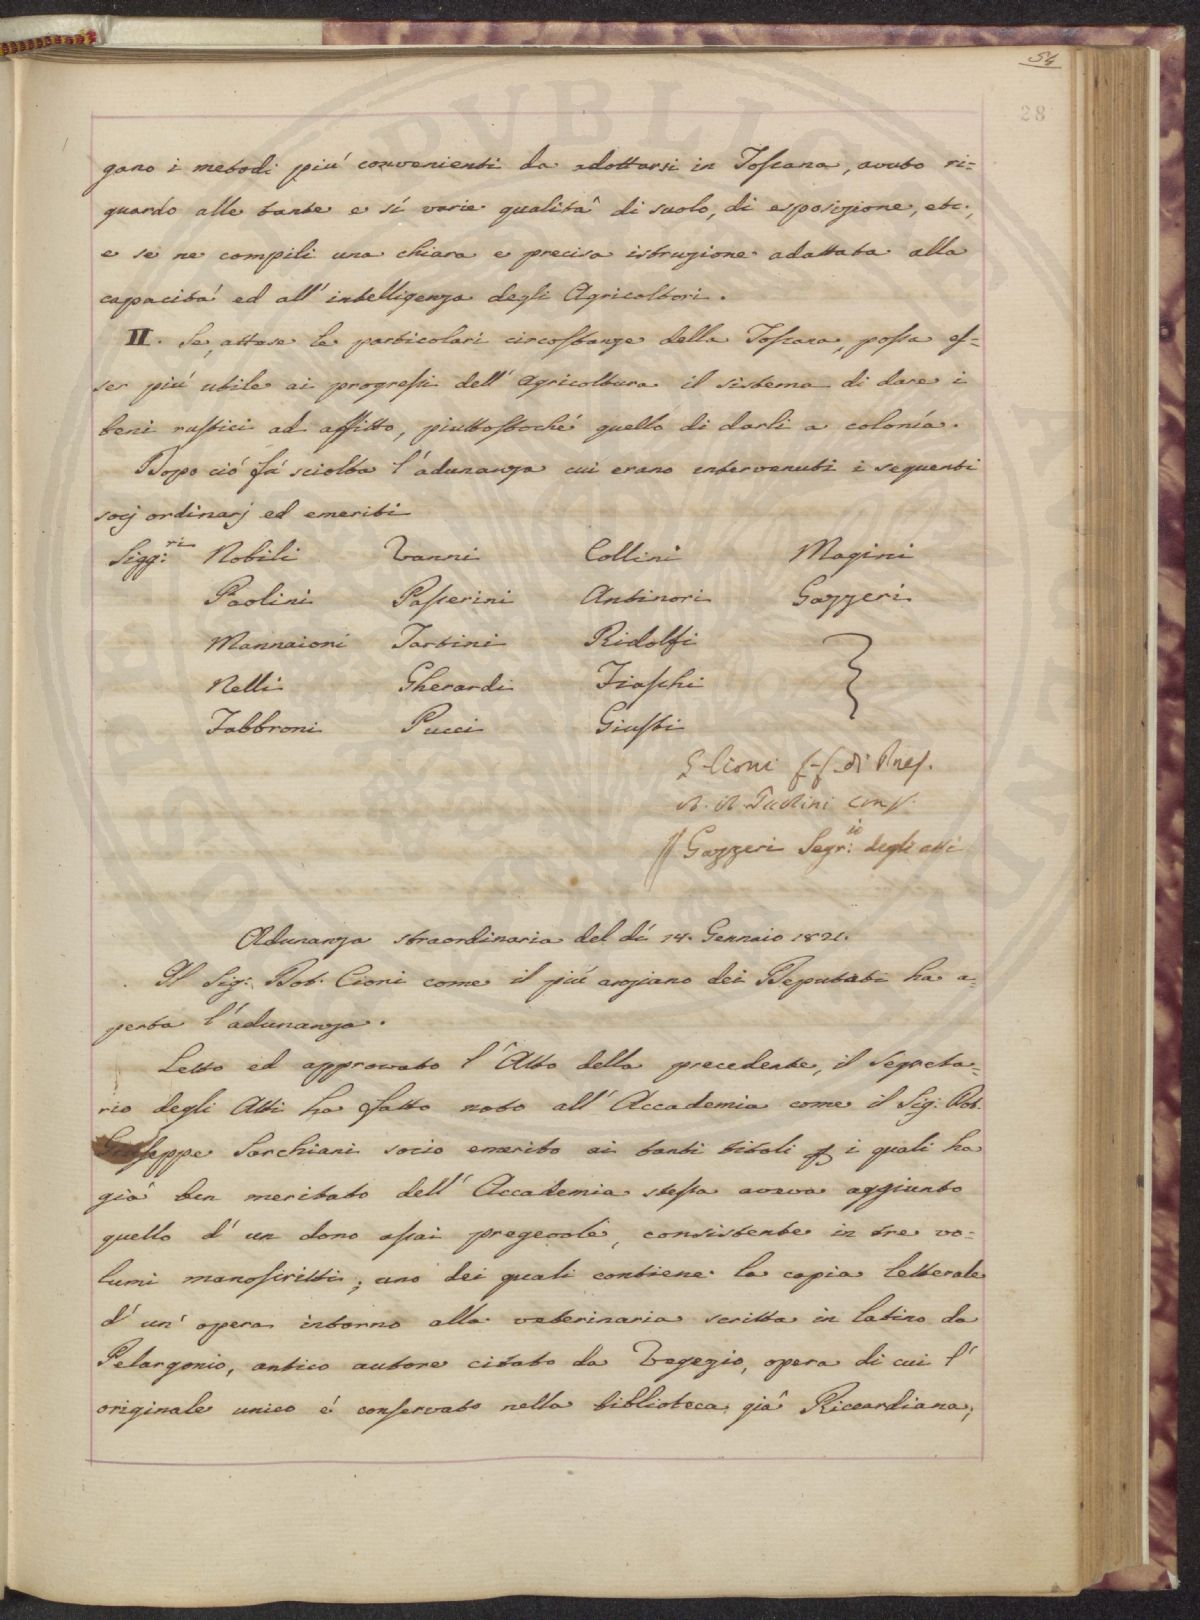 54
28
gano i metodi piú convenienti da adottarsi in Toscana, avuto ri=
guardo alle tante e sí varie qualitâ di suolo, di esposizione, etc.,
e se ne compili una chiara e precisa istruzione adattata alla
capacitá ed all' intelligenza degli Agricoltori.
II. Se, attese le particolari circostanze della Toscana, possa es=
ser piú utile ai progressi dell' agricoltura il sistema di dare i
beni rustici ad affitto, piuttostoché quello di darli a colonía.
Dopo ció fú sciolta l' adunanza cui erano intervenuti i seguenti
socj ordinarj ed emeriti
Sigg:ri Nobili Vanni Collini Magini
Paolini Passerini Antinori Gazzeri
Mannaioni Tartini Ridolfi
Nelli Gherardi Fiaschi
Fabbroni Pucci Giusti
G. Cioni f.f. di Pres.
Gazzeri Segr:io degli atti
Adunanza straordinaria del dí 14. Gennaio 1821.
Il Sig: Dot. Cioni come il piú anziano dei Deputati ha a=
perta l' adunanza.
Letto ed approvato l' Atto della precedente, il Segreta=
rio degli Atti ha fatto noto all' Accademia come il Sig: Dot.
Giuseppe Sarchiani socio emerito ai tanti titoli p i quali ha
giâ ben meritato dell' Accademia stessa aveva aggiunto
quello d' un dono assai pregevole, consistente in tre vo=
lumi manoscritti; uno dei quali contiene la copia letterale
d' un' opera intorno alla veterinaria scritta in latino da
Pelargonio, antico autore citato da Vegezio, opera di cui l'
originale unico é conservato nella biblioteca giâ Riccardiana,